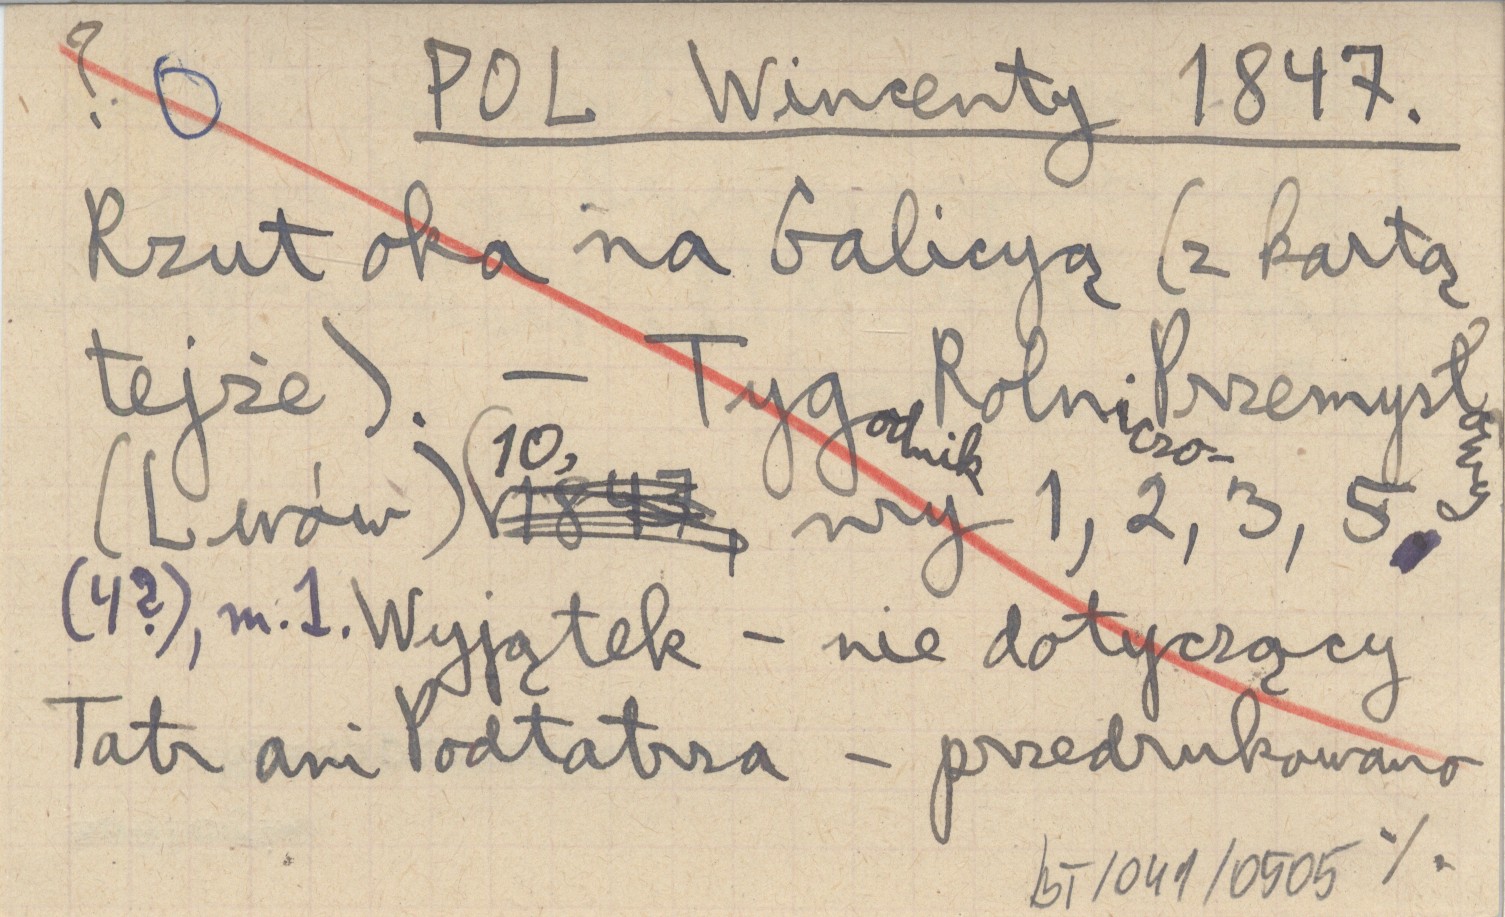 ? O POL Wincenty 1847.
Rzut oka na Galicyą (z kartą
tejże). — Tygodnik Rolniczo-Przemysłowy
(Lwów) 10, 1847, nry 1, 2, 3, 5
(4?), m. 1. Wyjątek – nie dotyczący
Tatr ani Podtatrza – przedrukowano
BT/041/0505 ./.